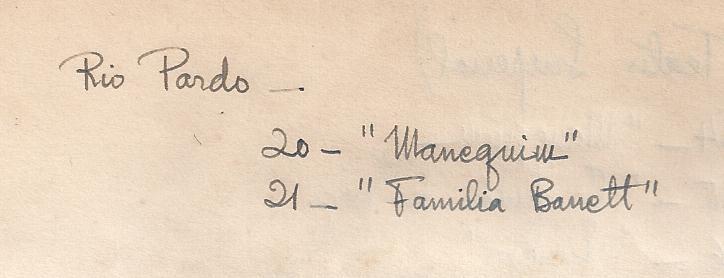 Rio Pardo —.
20 — "Manequim"
21 — "Familia Barrett"